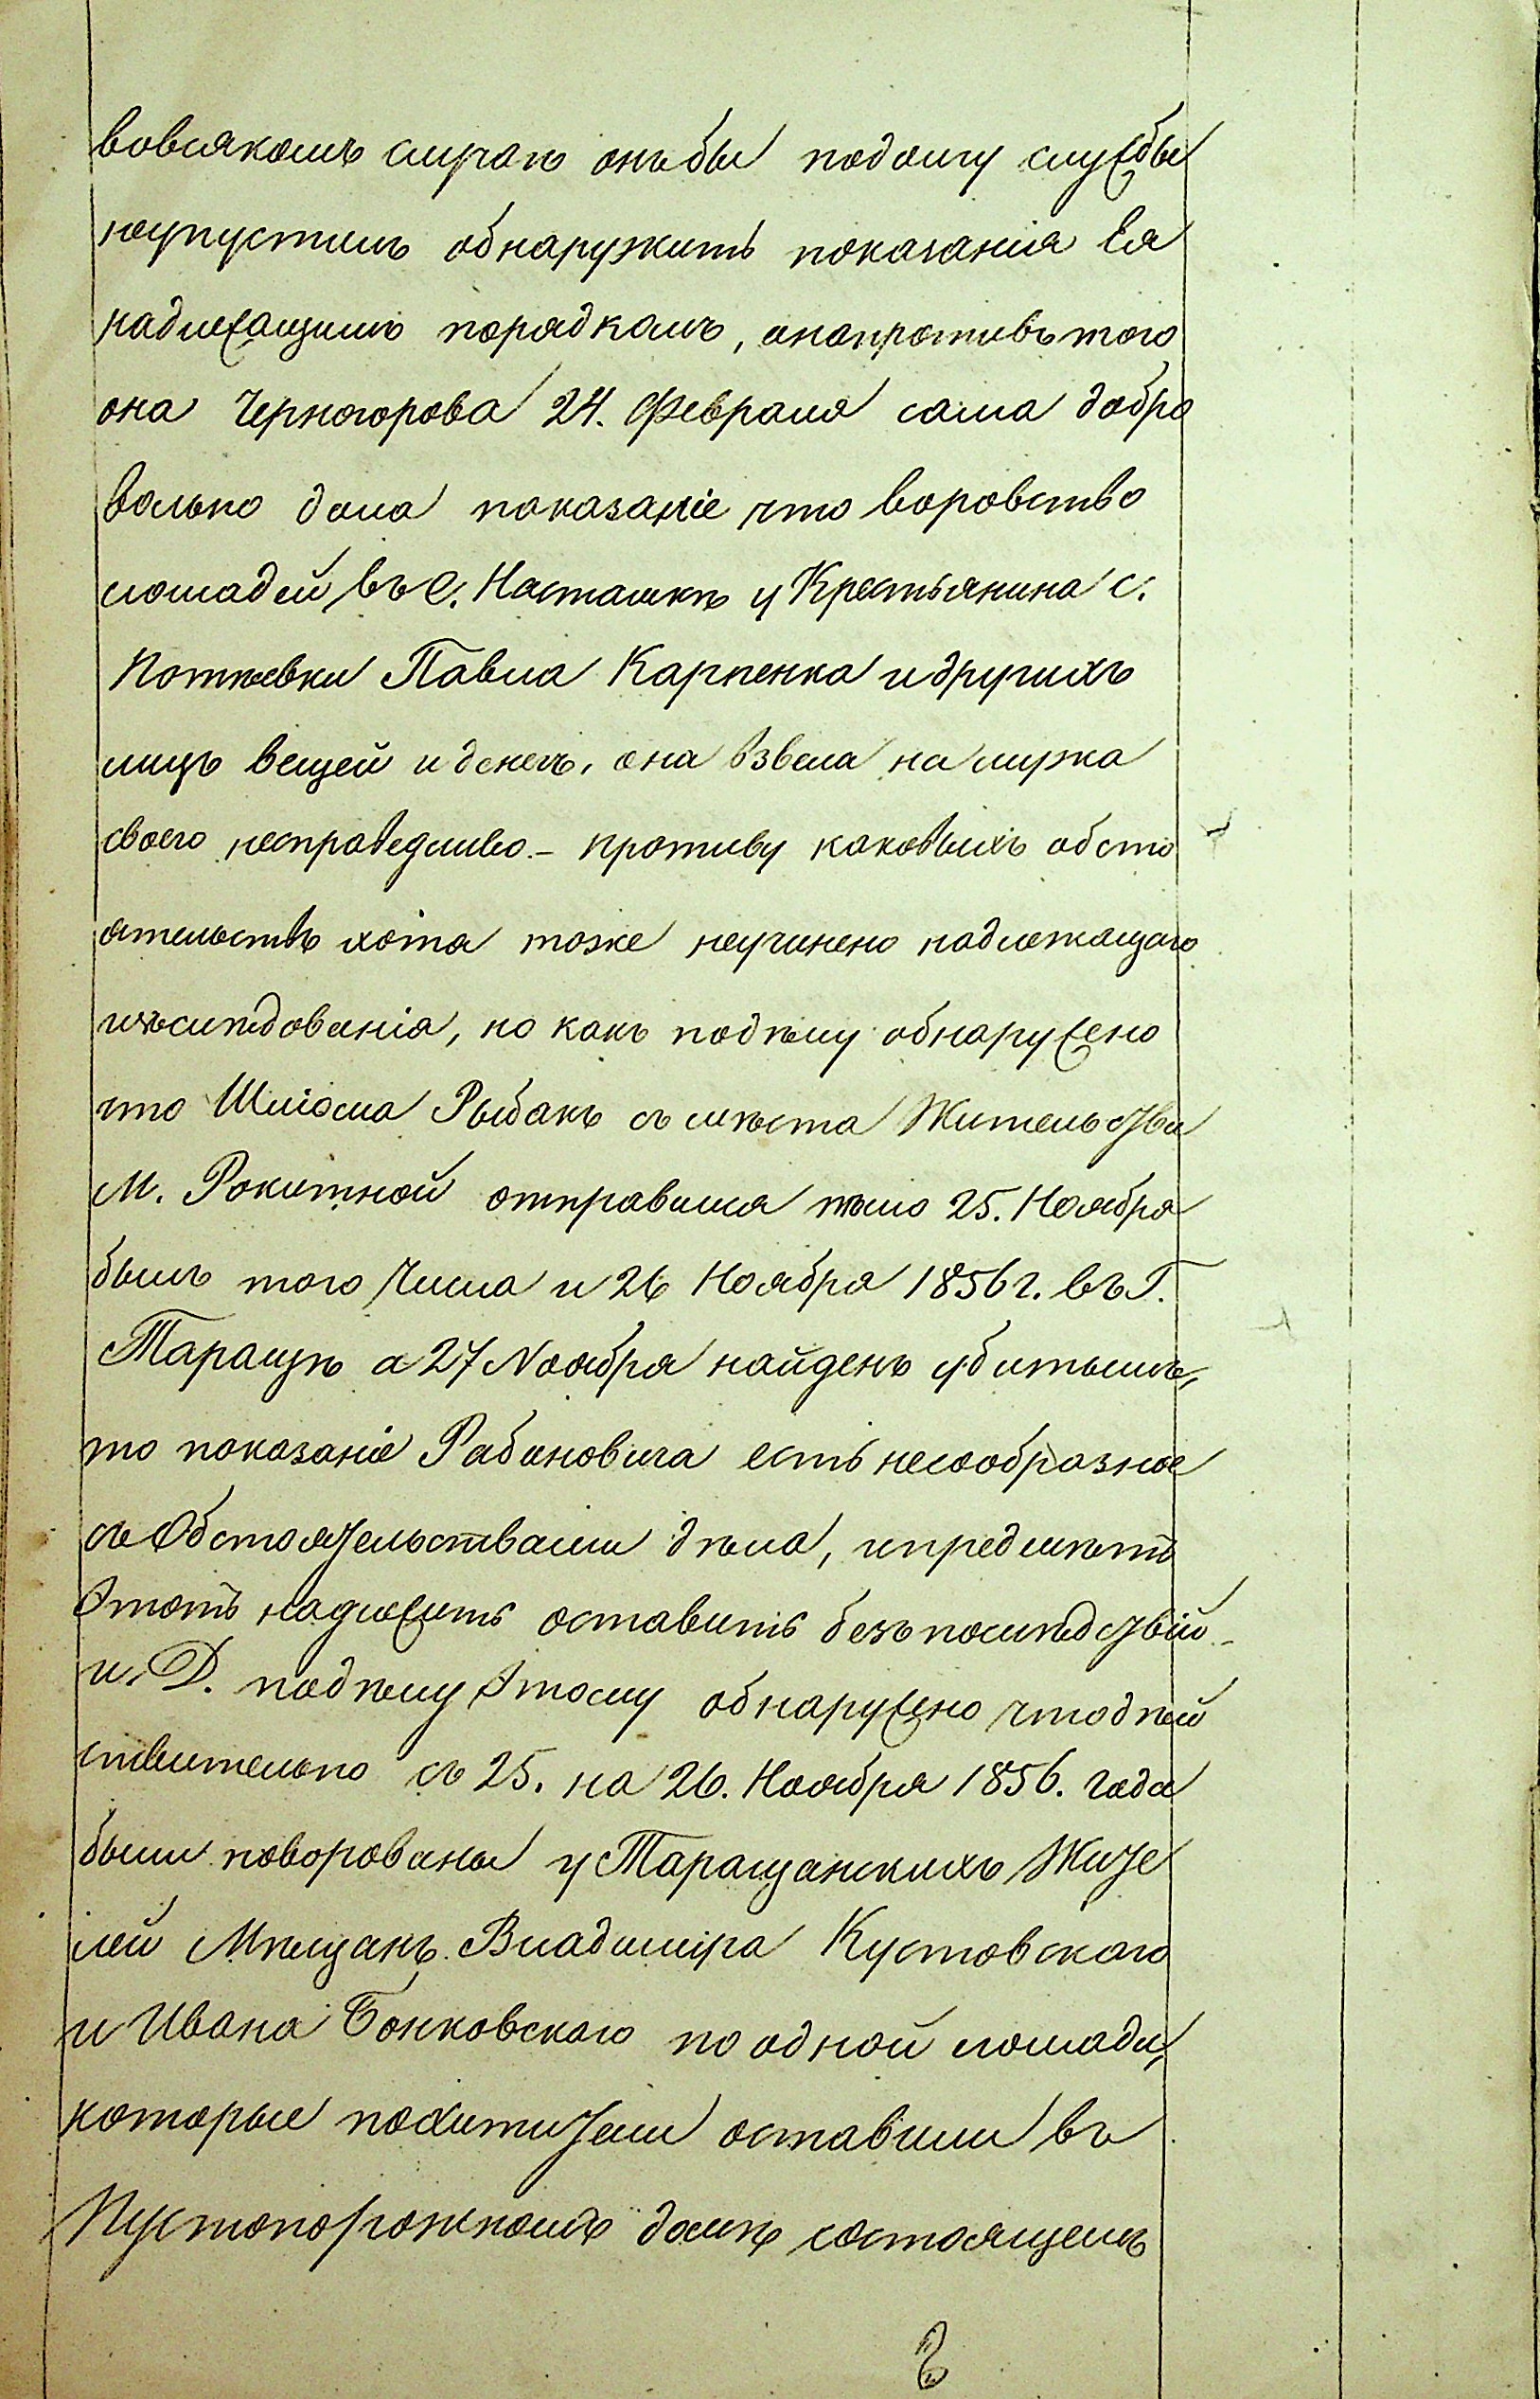 вовсякомъ случаѣ онъ бы подолгу службы
неупустилъ обнаружить показанія Ея
надлежащимъ порядкомъ, анапротивъ того
она Черногорова 24. Февраля сама добро
вольно дала показаніе что воровство
лошадей въ с. Насташкѣ у Крестьянина с.
Потіевки Павла Карпенка и другихъ
лицъ вещей и денегъ, она взвела на мужа
своего несправедливо. – противу каковыхъ обсто
ятельствъ хотя тоже неучинено надлежащаго
изъслѣдованія, но какъ подѣлу обнаружено
что Шліома Рыбакъ съ мѣста Жительства
М. Рокитной отправился 25. Ноября
былъ того Числа и 26 Ноября 1856 г. въ Г.
Таращѣ а 27 Ноября найденъ убитымъ,
то показаніе Рабиновича есть несообразное
съ Обстоятельствами дѣла, ипредмѣтъ
Этотъ надлежитъ оставить безъ послѣдствій –
и, Д. подѣлу Этому обнаружено чтодѣй
ствительно съ 25. на 26. Ноября 1856. года
были поворованы у Таращанскихъ Жите
лей Мѣщанъ Владиміра Кустовскаго
и Ивана Бонковскаго по одной лошади,
которые похитители оставили въ
Пустопорожномъ домѣ состоящемъ